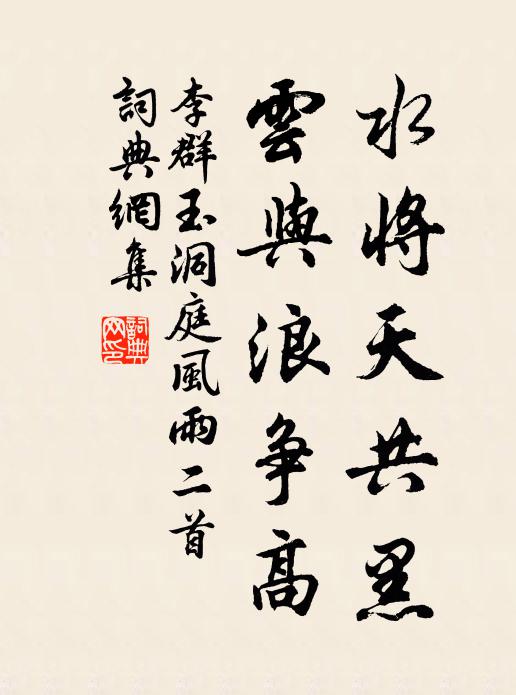 水將天共黑
雲與浪争高
李群玉洞庭風雨二首
詞典網集
詞典
网印